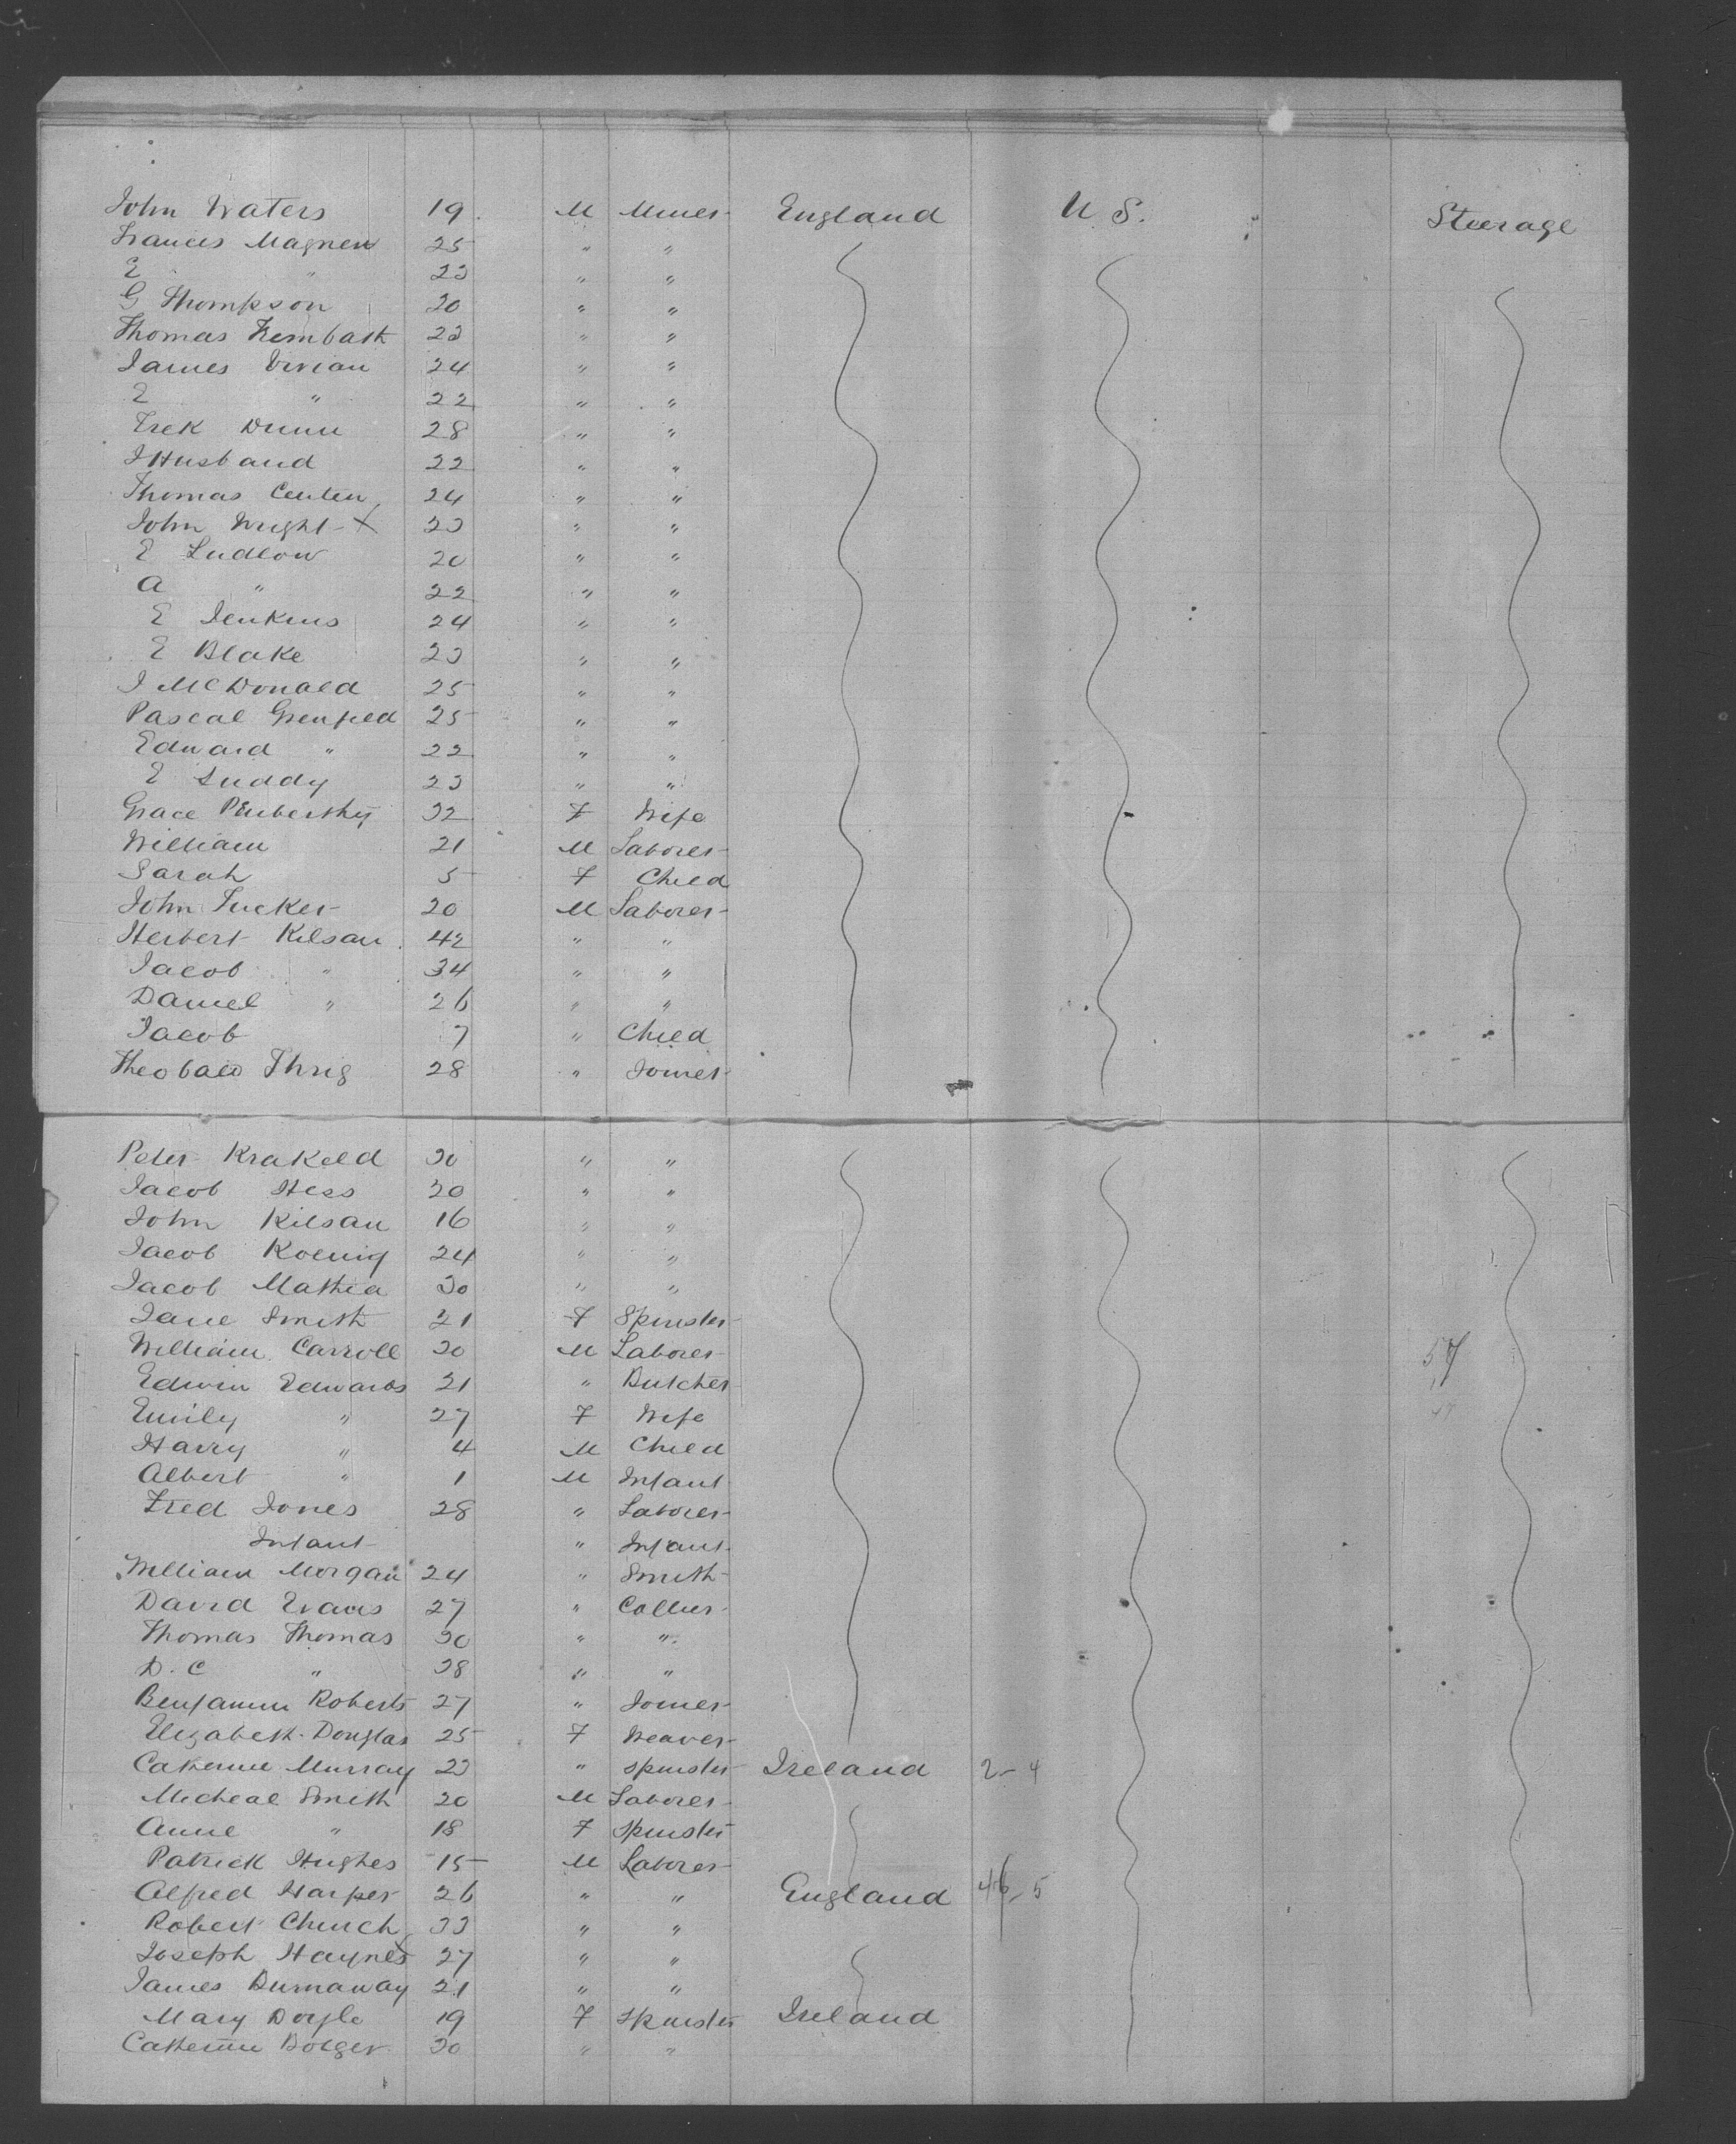 John Waters 19 M Miner England U S. Steerage
Frances Magnew 25 " "
E " 23 " "
G Thompson 20 " "
Thomas Trembath 23 " "
James Vivian 24 " "
E " 22 " "
Frek Dunn 28 " "
J Husband 22 " "
Thomas Centen 24 " "
John Wright X 23 " "
E Ludlow 20 " "
A " 22 " "
E Jenkins 24 " "
E Blake 23 " "
J McDonald 25 " "
Pascal Grenfield 25 " "
Edward " 22 " "
E Luddy 23 " "
Grace Penberthy 32 F Wife
William 21 M Laborer
Sarah 5 F Child
John Tucker 20 M Laborer
Herbert Kilsan 42 " "
Jacob " 34 " "
Daniel " 26 " "
Jacob 7 " Child
Theobald Thrig 28 " Joiner
Peter Krakeld 30 " "
Jacob Hess 30 " "
John Kilsan 16 " "
Jacob Koenig 24 " "
Jacob Mathia 30 " "
Jane Smith 21 F Spinster
William Carroll 30 M Laborer 57
Edwin Edwards 31 " Butcher
Emily " 27 F Wife
Harry " 4 M Child
Albert " 1 M Infant
Fred Jones 28 " Laborer
Infant " Infant
William Morgan 24 " Smith
David Evans 27 " Collier
Thomas Thomas 30 " "
D. C " 38 " "
Benjamin Roberts 27 " Joiner
Elizabeth Douglas 25 F Weaver
Catherine Murray 23 " Spinster Ireland 2-4
Micheal Smith 20 M Laborer
Anne " 18 F Spinster
Patrick Hughes 15 M Laborer
Alfred Harper 26 " " England 46-5
Robert Church 33 " "
Joseph Haynes 27 " "
James Burnaway 21 " "
Mary Doyle 19 F Spinster Ireland
Catherine Bolger 30 " "